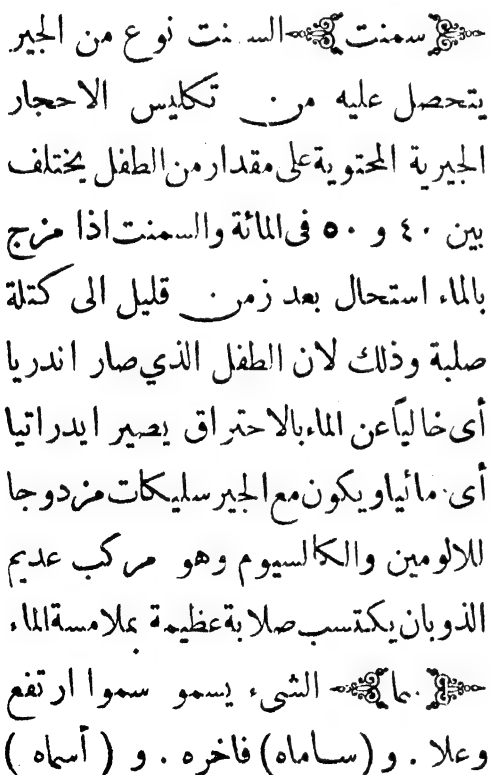 سمنت السمنت نوع من الجير
يتحصل عليه من تكليس الاحجار
الجيرية المحتوية على مقدار من الطفل يختلف
بين ٤٠ و ٥٠ فى المائة والسمنت اذا مزج
بالماء استحال بعد زمن قليل الى كتلة
صلبة وذلك لان الطفل الذي صار اندريا
أى خالياً عن الماء بالاحتراق يصير ايدراتيا
أى مائيا ويكون مع الجير سليكات مزدوجا
للالومين والكالسيوم وهو مركب عديم
الذوبان يكتسب صلابة عظيمة بملامسة الماء
سما الشىء يسمو سموا ارتفع
وعلا . و (ساماه) فاخره . و ( أسماه )